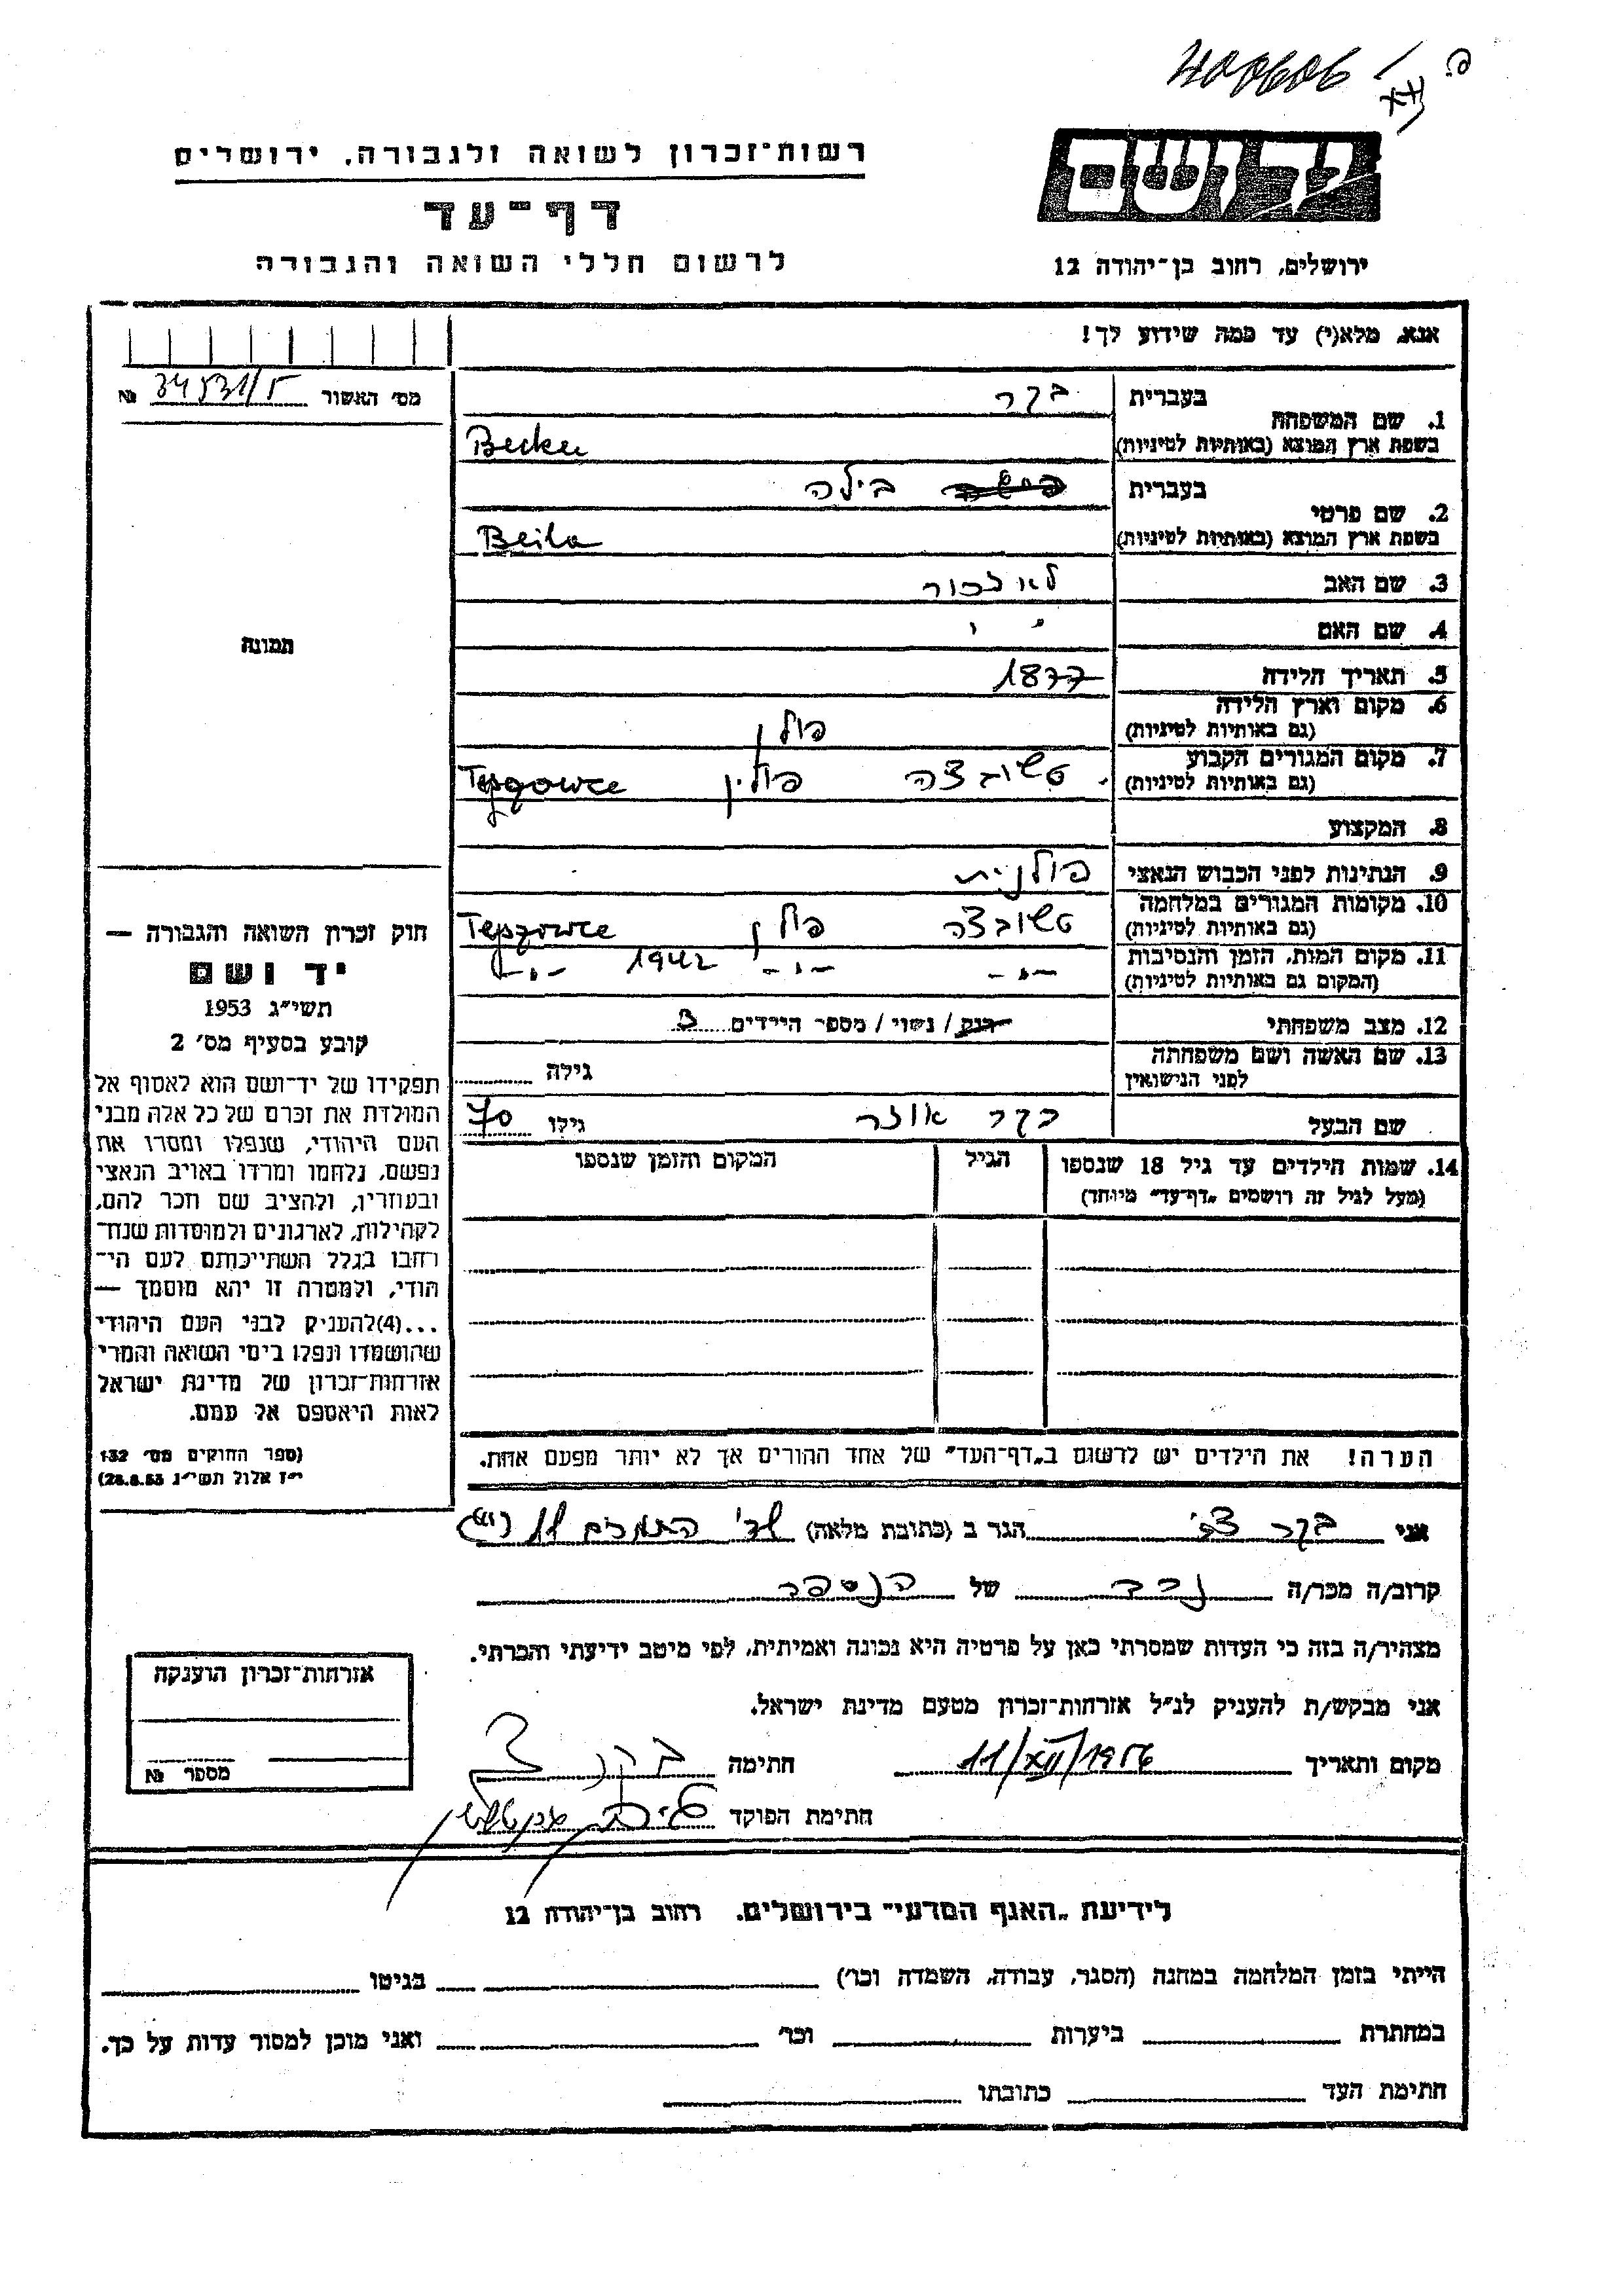 רשות־זכרון לשואה ולגבורה, ירושלים
דף־עד
לרשום חללי השואה והגבורה
יד ושם
ירושלים, רחוב בן־יהודה 12
אנא, מלא(י) עד כמה שידוע לך!
מס׳ האשור № 34531/5
1. שם המשפחה
בעברית בקר
בשפת ארץ המוצא (באותיות לטיניות) Becker
2. שם פרטי
בעברית בילה
בשפת ארץ המוצא (באותיות לטיניות) Beila
3. שם האב לא זכור
4. שם האם
5. תאריך הלידה 1877
6. מקום וארץ הלידה פולין
(גם באותיות לטיניות)
7. מקום המגורים הקבוע טשובצה פולין
(גם באותיות לטיניות)
8. המקצוע
9. הנתינות לפני הכבוש הנאצי פולנית
10. מקומות המגורים במלחמה טשובצה פולין
(גם באותיות לטיניות)
11. מקום המות, הזמן והנסיבות -"- -"- 1942 -"-
(המקום גם באותיות לטיניות)
12. מצב משפחתי רווק / נשוי / מספר הילדים 3
13. שם האשה ושם משפחתה
לפני הנישואין
גילה
שם הבעל בקר אוזר גילו 70
14. שמות הילדים עד גיל 18 שנספו הגיל המקום והזמן שנספו
(מעל לגיל זה רושמים „דף־עד״ מיוחד)
הערה! את הילדים יש לרשום ב„דף־העד״ של אחד ההורים אך לא יותר מפעם אחת.
תמונה
חוק זכרון השואה והגבורה —
יד ושם
תשי״ג 1953
קובע בסעיף מס׳ 2
תפקידו של יד־ושם הוא לאסוף אל
המולדת את זכרם של כל אלה מבני
העם היהודי, שנפלו ומסרו את
נפשם, נלחמו ומרדו באויב הנאצי
ובעוזריו, ולהציב שם וזכר להם,
לקהילות, לארגונים ולמוסדות שנח־
רבו בגלל השתייכותם לעם הי־
הודי, ולמטרה זו יהא מוסמך —
...(4)להעניק לבני העם היהודי
שהושמדו ונפלו בימי השואה והמרי
אזרחות־זכרון של מדינת ישראל
לאות היאספם אל עמם.
(ספר החוקים מס׳ 132
י״ז אלול תשי״ג 28.8.53)
אני בקר צבי הגר ב (כתובת מלאה) שד׳
קרוב/ה מכר/ה נכד של הנספה
מצהיר/ה בזה כי העדות שמסרתי כאן על פרטיה היא נכונה ואמיתית, לפי מיטב ידיעתי והכרתי.
אני מבקש/ת להעניק לנ״ל אזרחות־זכרון מטעם מדינת ישראל.
מקום ותאריך 11/XII/1956 חתימה בקר צ
חתימת הפוקד
אזרחות־זכרון הוענקה
מספר №
לידיעת „האגף המדעי״ בירושלים, רחוב בן־יהודה 12
הייתי בזמן המלחמה במחנה (הסגר, עבודה, השמדה וכו׳) בגיטו
במחתרת ביערות וכו׳ ואני מוכן למסור עדות על כך.
חתימת העד כתובתו